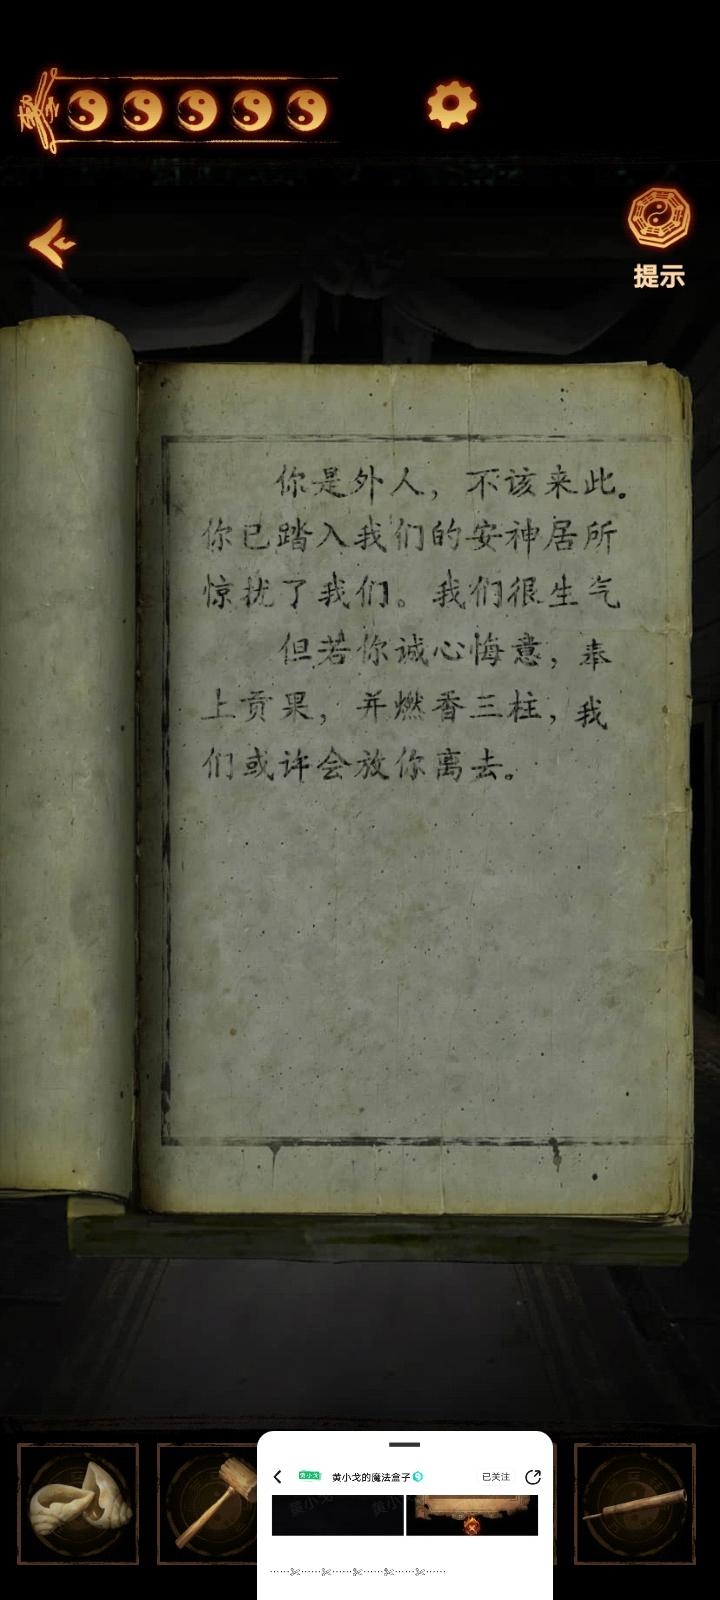 提示
你是外人，不该来此。
你已踏入我们的安神居所
惊扰了我们。我们很生气
但若你诚心悔意，奉
上贡果，并燃香三柱，我
们或许会放你离去。
黄小戈 黄小戈的魔法盒子 已关注